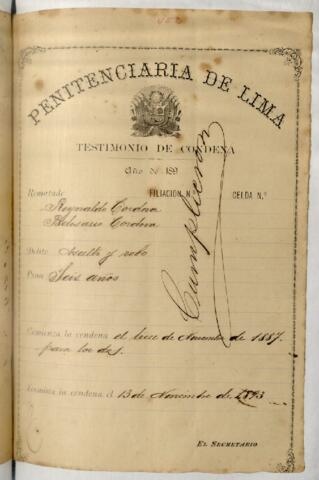 PENITENCIARIA DE LIMA
TESTIMONIO DE CONDENA
Año de 189
Rematado FILIACION N.º CELDA N.º
Reynaldo Cordova
Belisario Cordova
Cumplieron
Delito Asalto y robo
Pena Seis años
Comienza la condena el trece de Noviembre de 1887.
para los dos.
Termina la condena el 13 de Noviembre de 1893
EL SECRETARIO